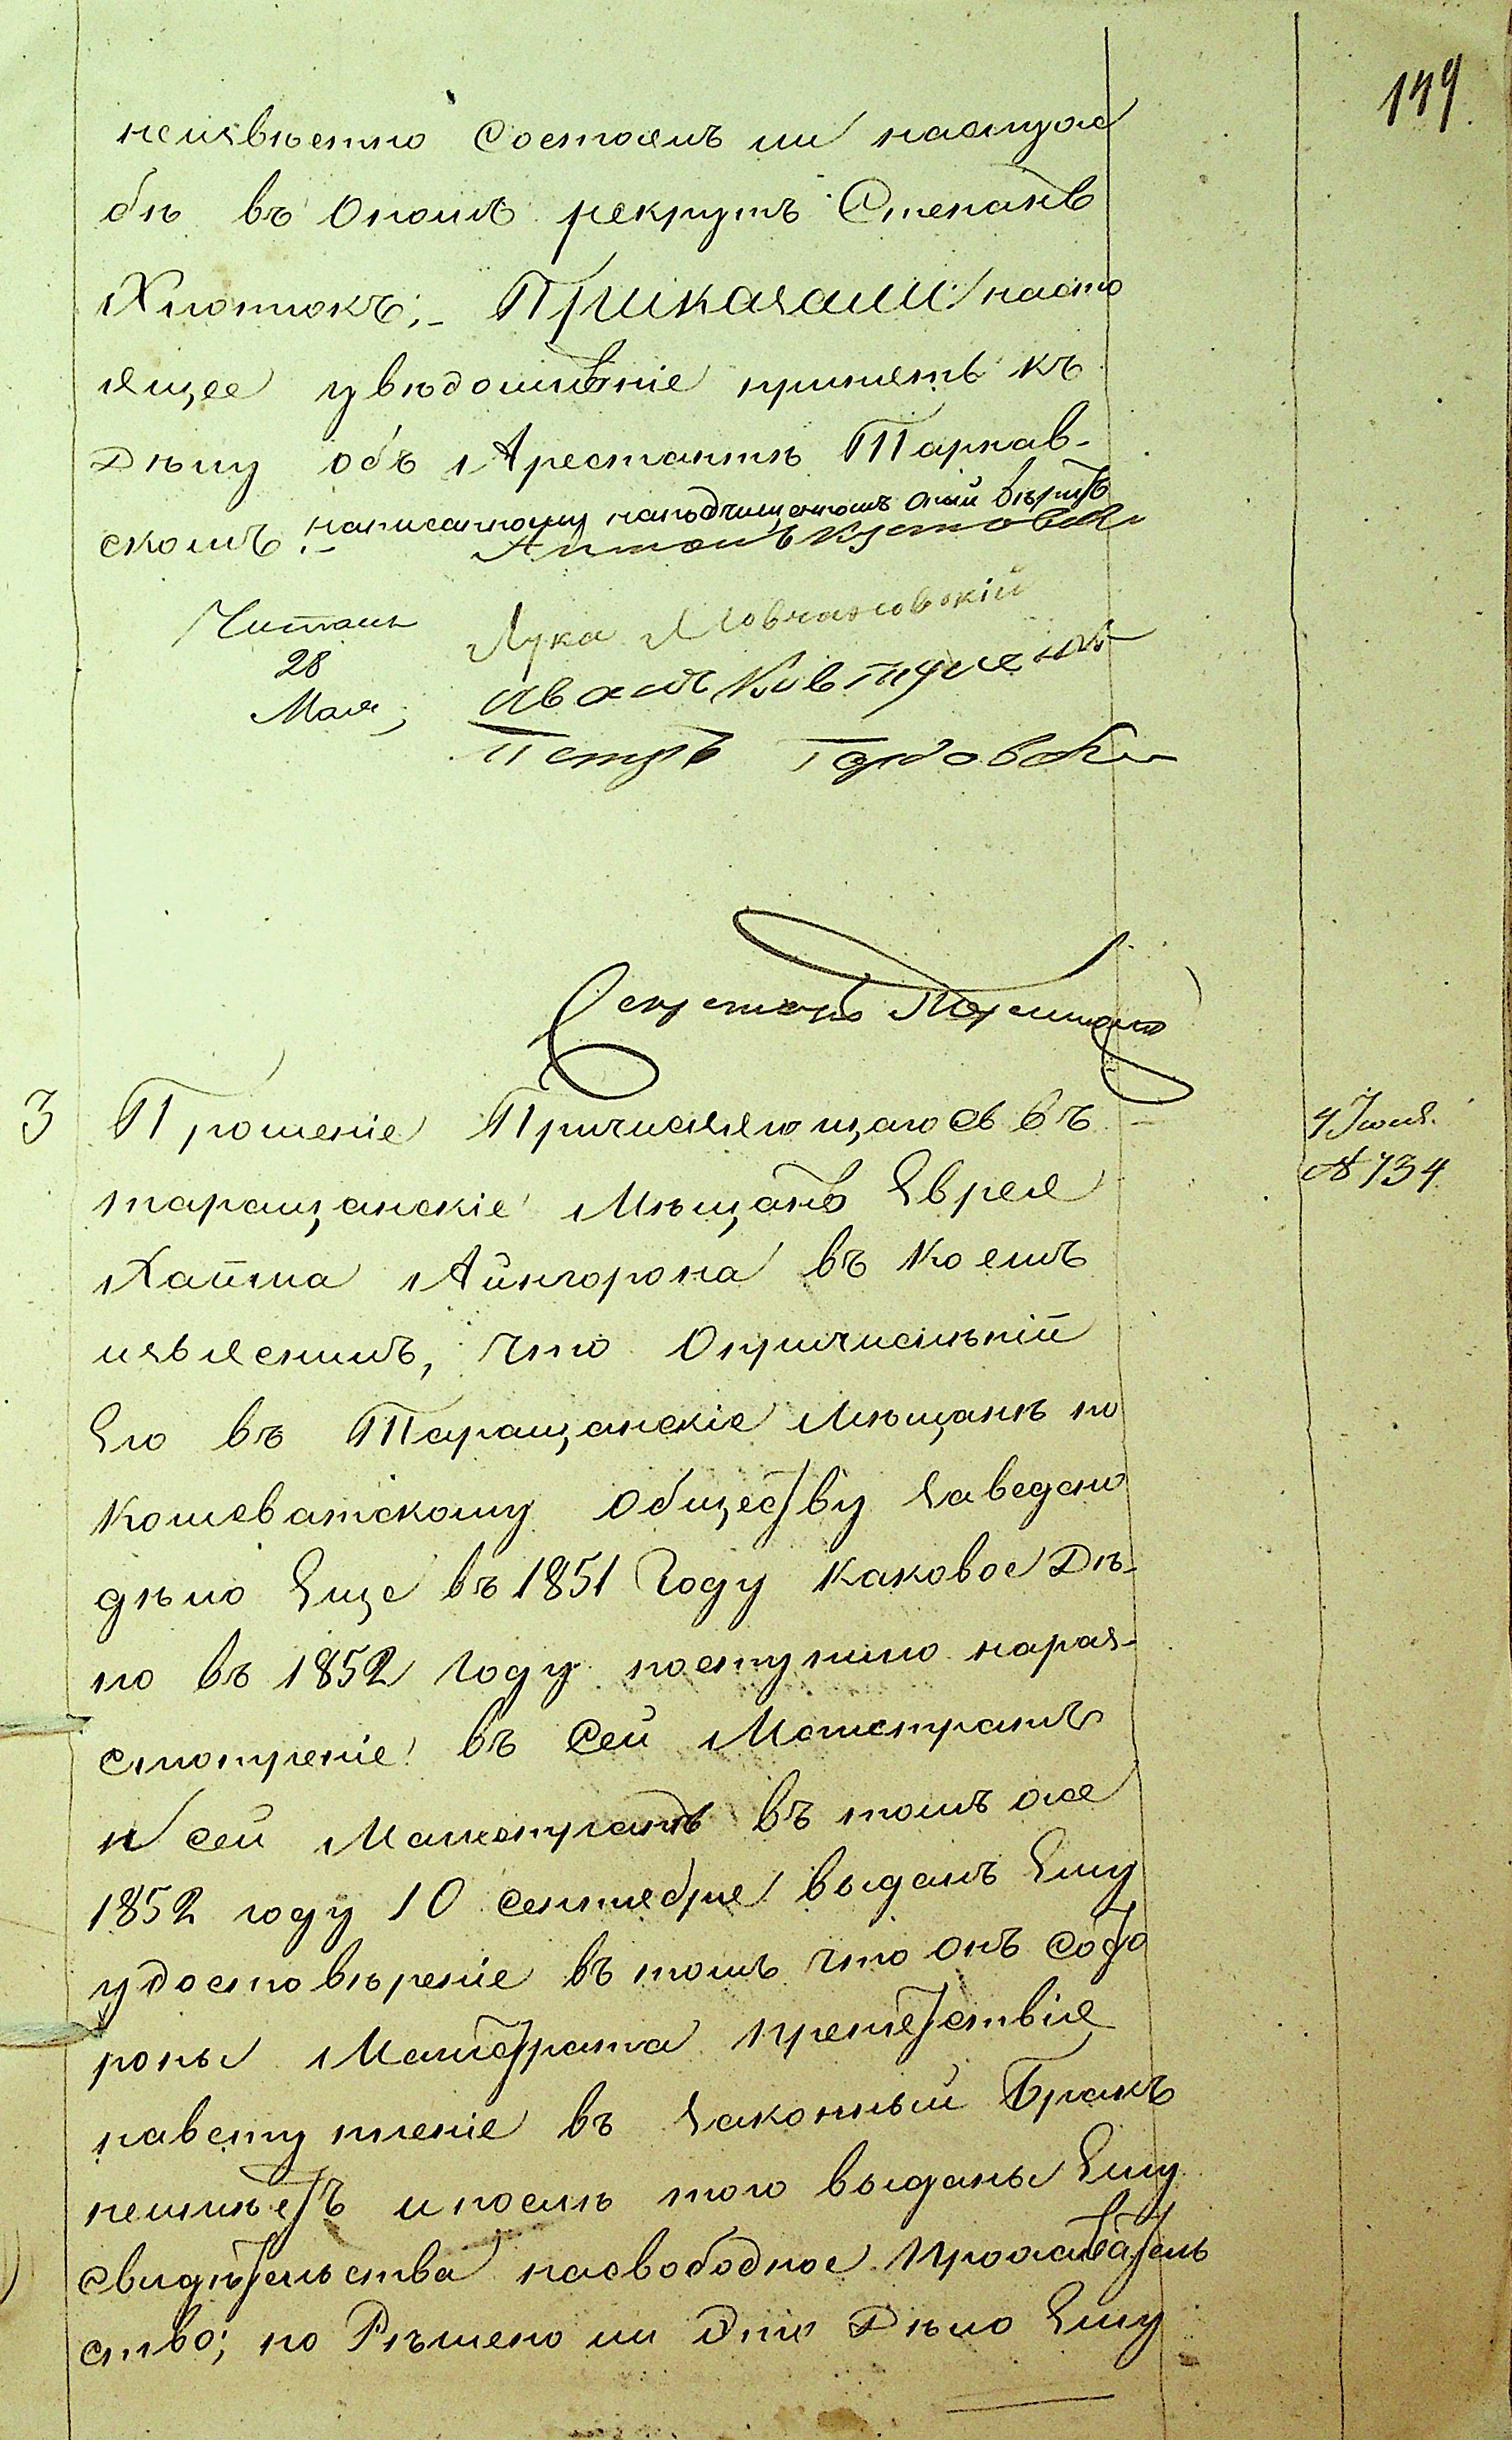 149
неизвѣстно состоитъ ли наслуж
бѣ въ ономъ рекрутъ Степанъ
Хлопокъ;- Приказали: насто
ящее увѣдомленіе пріинять къ
Дѣлу объ Арестантѣ Тарнав-
скомъ.- написанному наподчищенномъ
Читалъ
28
Мая,
Лука Мовчановскій
Иванъ Ковтуненко
Петръ
Секретарь
3 Прошеніе Причисляющагось въ 4 Іюня.
таращанскіе Мѣщанъ Еврея № 734
Хаима Айнгорона въ коемъ
изъясняя, что опричисленій
Его въ Таращанскіе Мѣщанѣ по
кошеватскому обществу Заведено
дѣло Еще въ 1851 Году каковое Дѣ-
ло въ 1852 Году поступило нараз-
смотреніе въ Сей Магистратъ
и сей Магистратъ въ томъ же
1852 году 10 сентября выдалъ Ему
удостовѣреніе въ томъ что онъ состо
роны Магистрата препятствія
навступленіе въ Законный Бракъ
неимѣетъ и послѣ того выданы Ему
свидѣтельства насвободное проживатель
ство; но Рѣшено ли Это Дѣло Ему